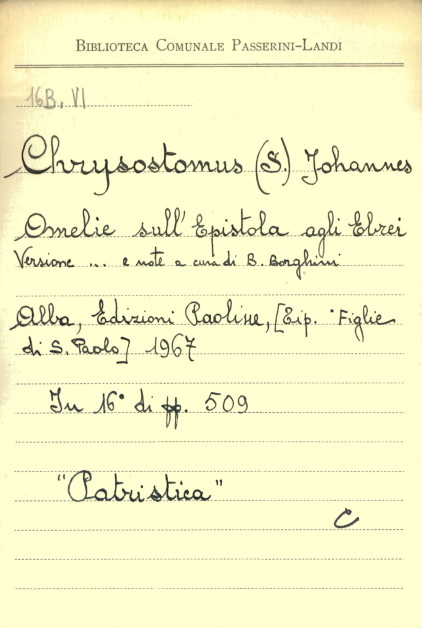 BIBLIOTECA COMUNALE PASSERINI-LANDI
16B. VI
Chrysostomus (S.) Johannes
Omelie sull'Epistola agli Ebrei
Versione ... e note a cura di B. Borghini
Alba, Edizioni Paoline, [Tip. Figlie
di S. Paolo] 1967
In 16° di pp. 509
"Patristica"
C